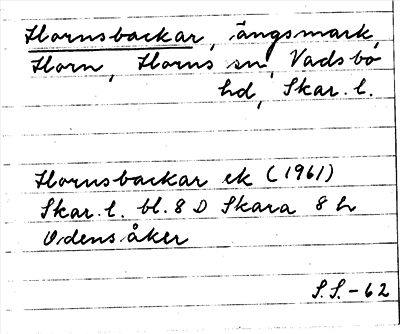 Hornsbackar, ängsmark,
Horn, Horns sn, Vadsbo
hd, Skar. l.
Hornsbackar ek (1961)
Skar. l. bl. 8 D Skara 8 h
Odensåker
S.S.-62